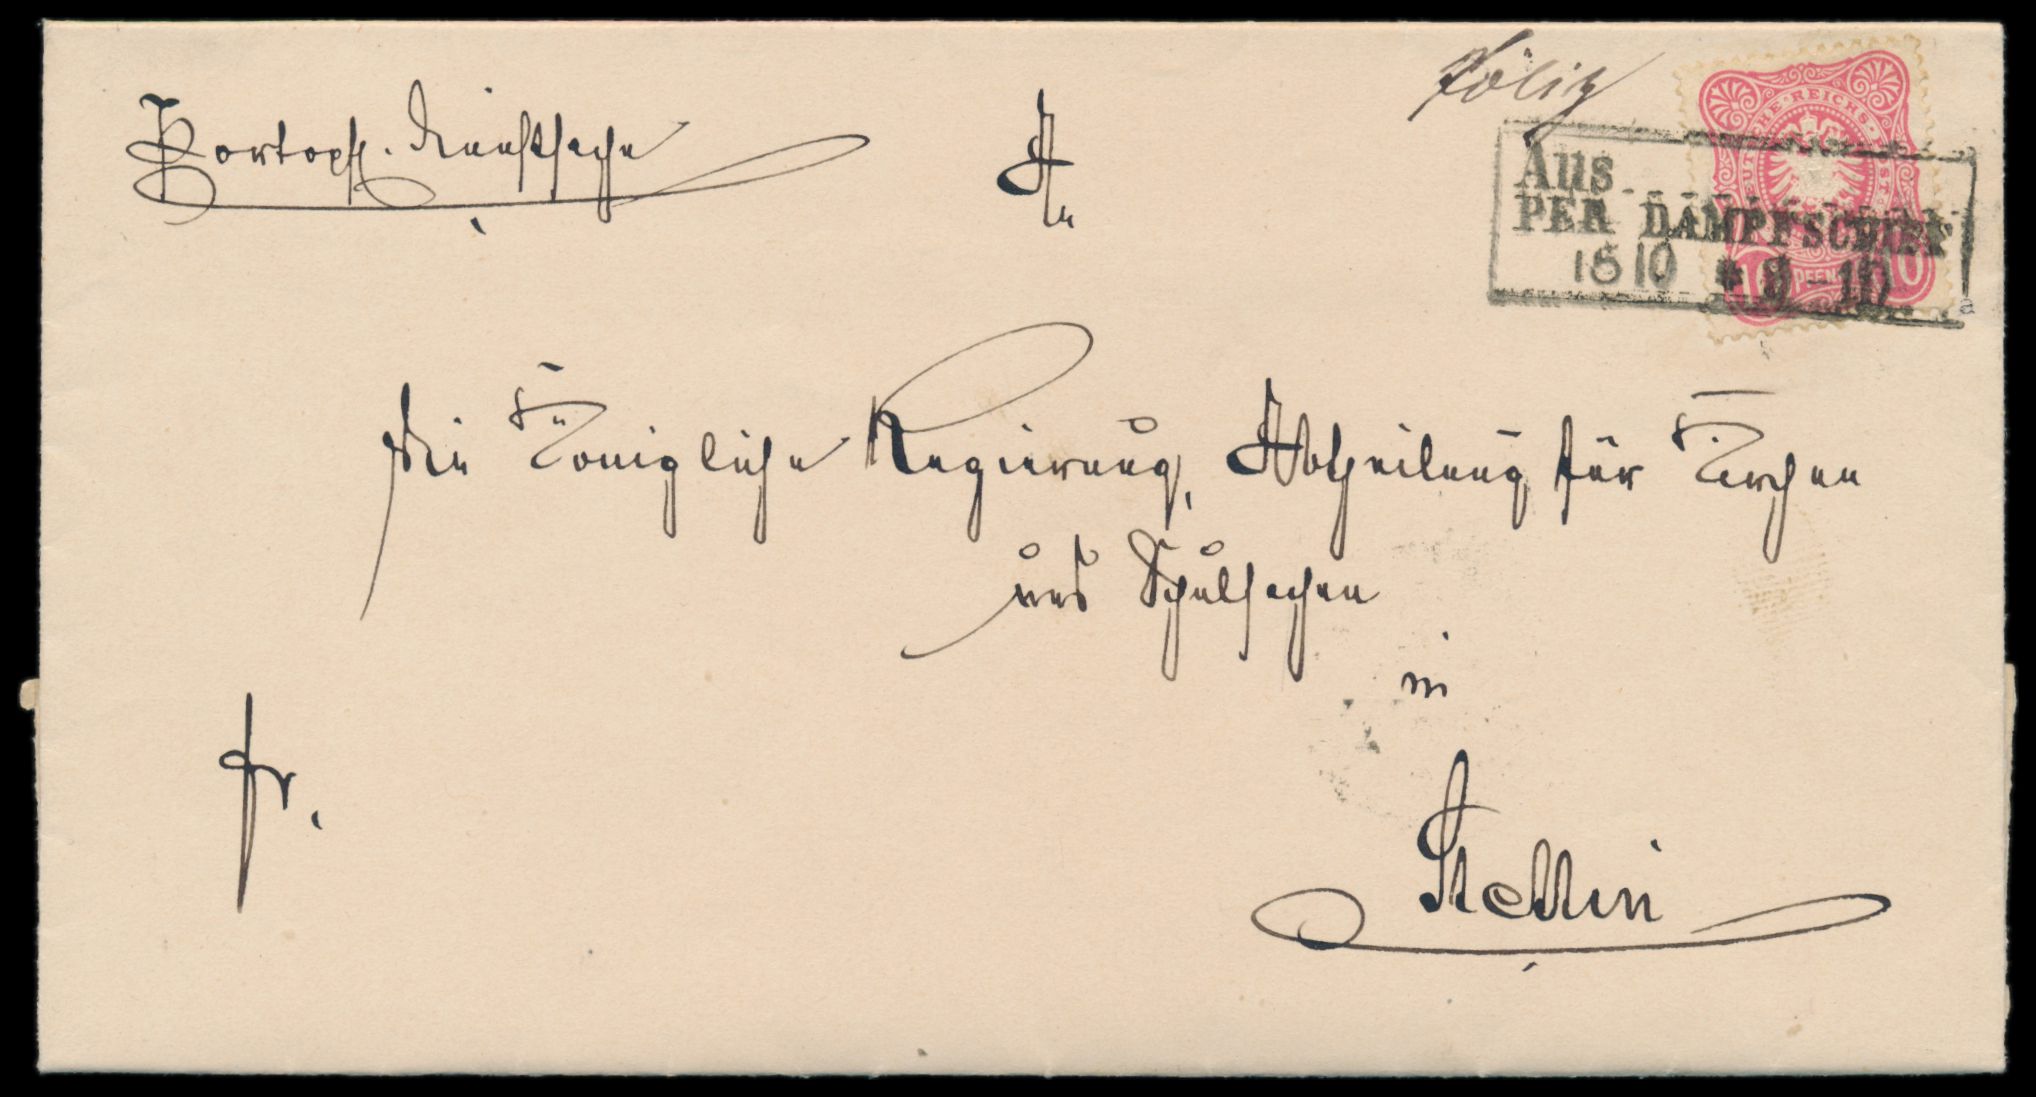 Pölitz
Portopfl. Dienstsache
An
DEUTSCHE REICHS-POST
Aus
PER DAMPFSCHIFF
16 10 * 9 - 10
10 PFENNIG 10
die Königliche Regierung, Abtheilung für Kirchen
und Schulsachen
in
fr.
Stettin